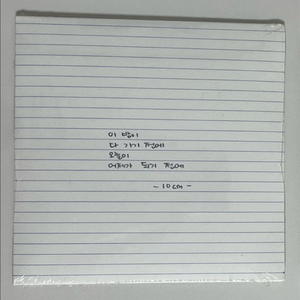 이 밤이
다 가기 전에
오늘이
어제가 되기 전에
-10cm-